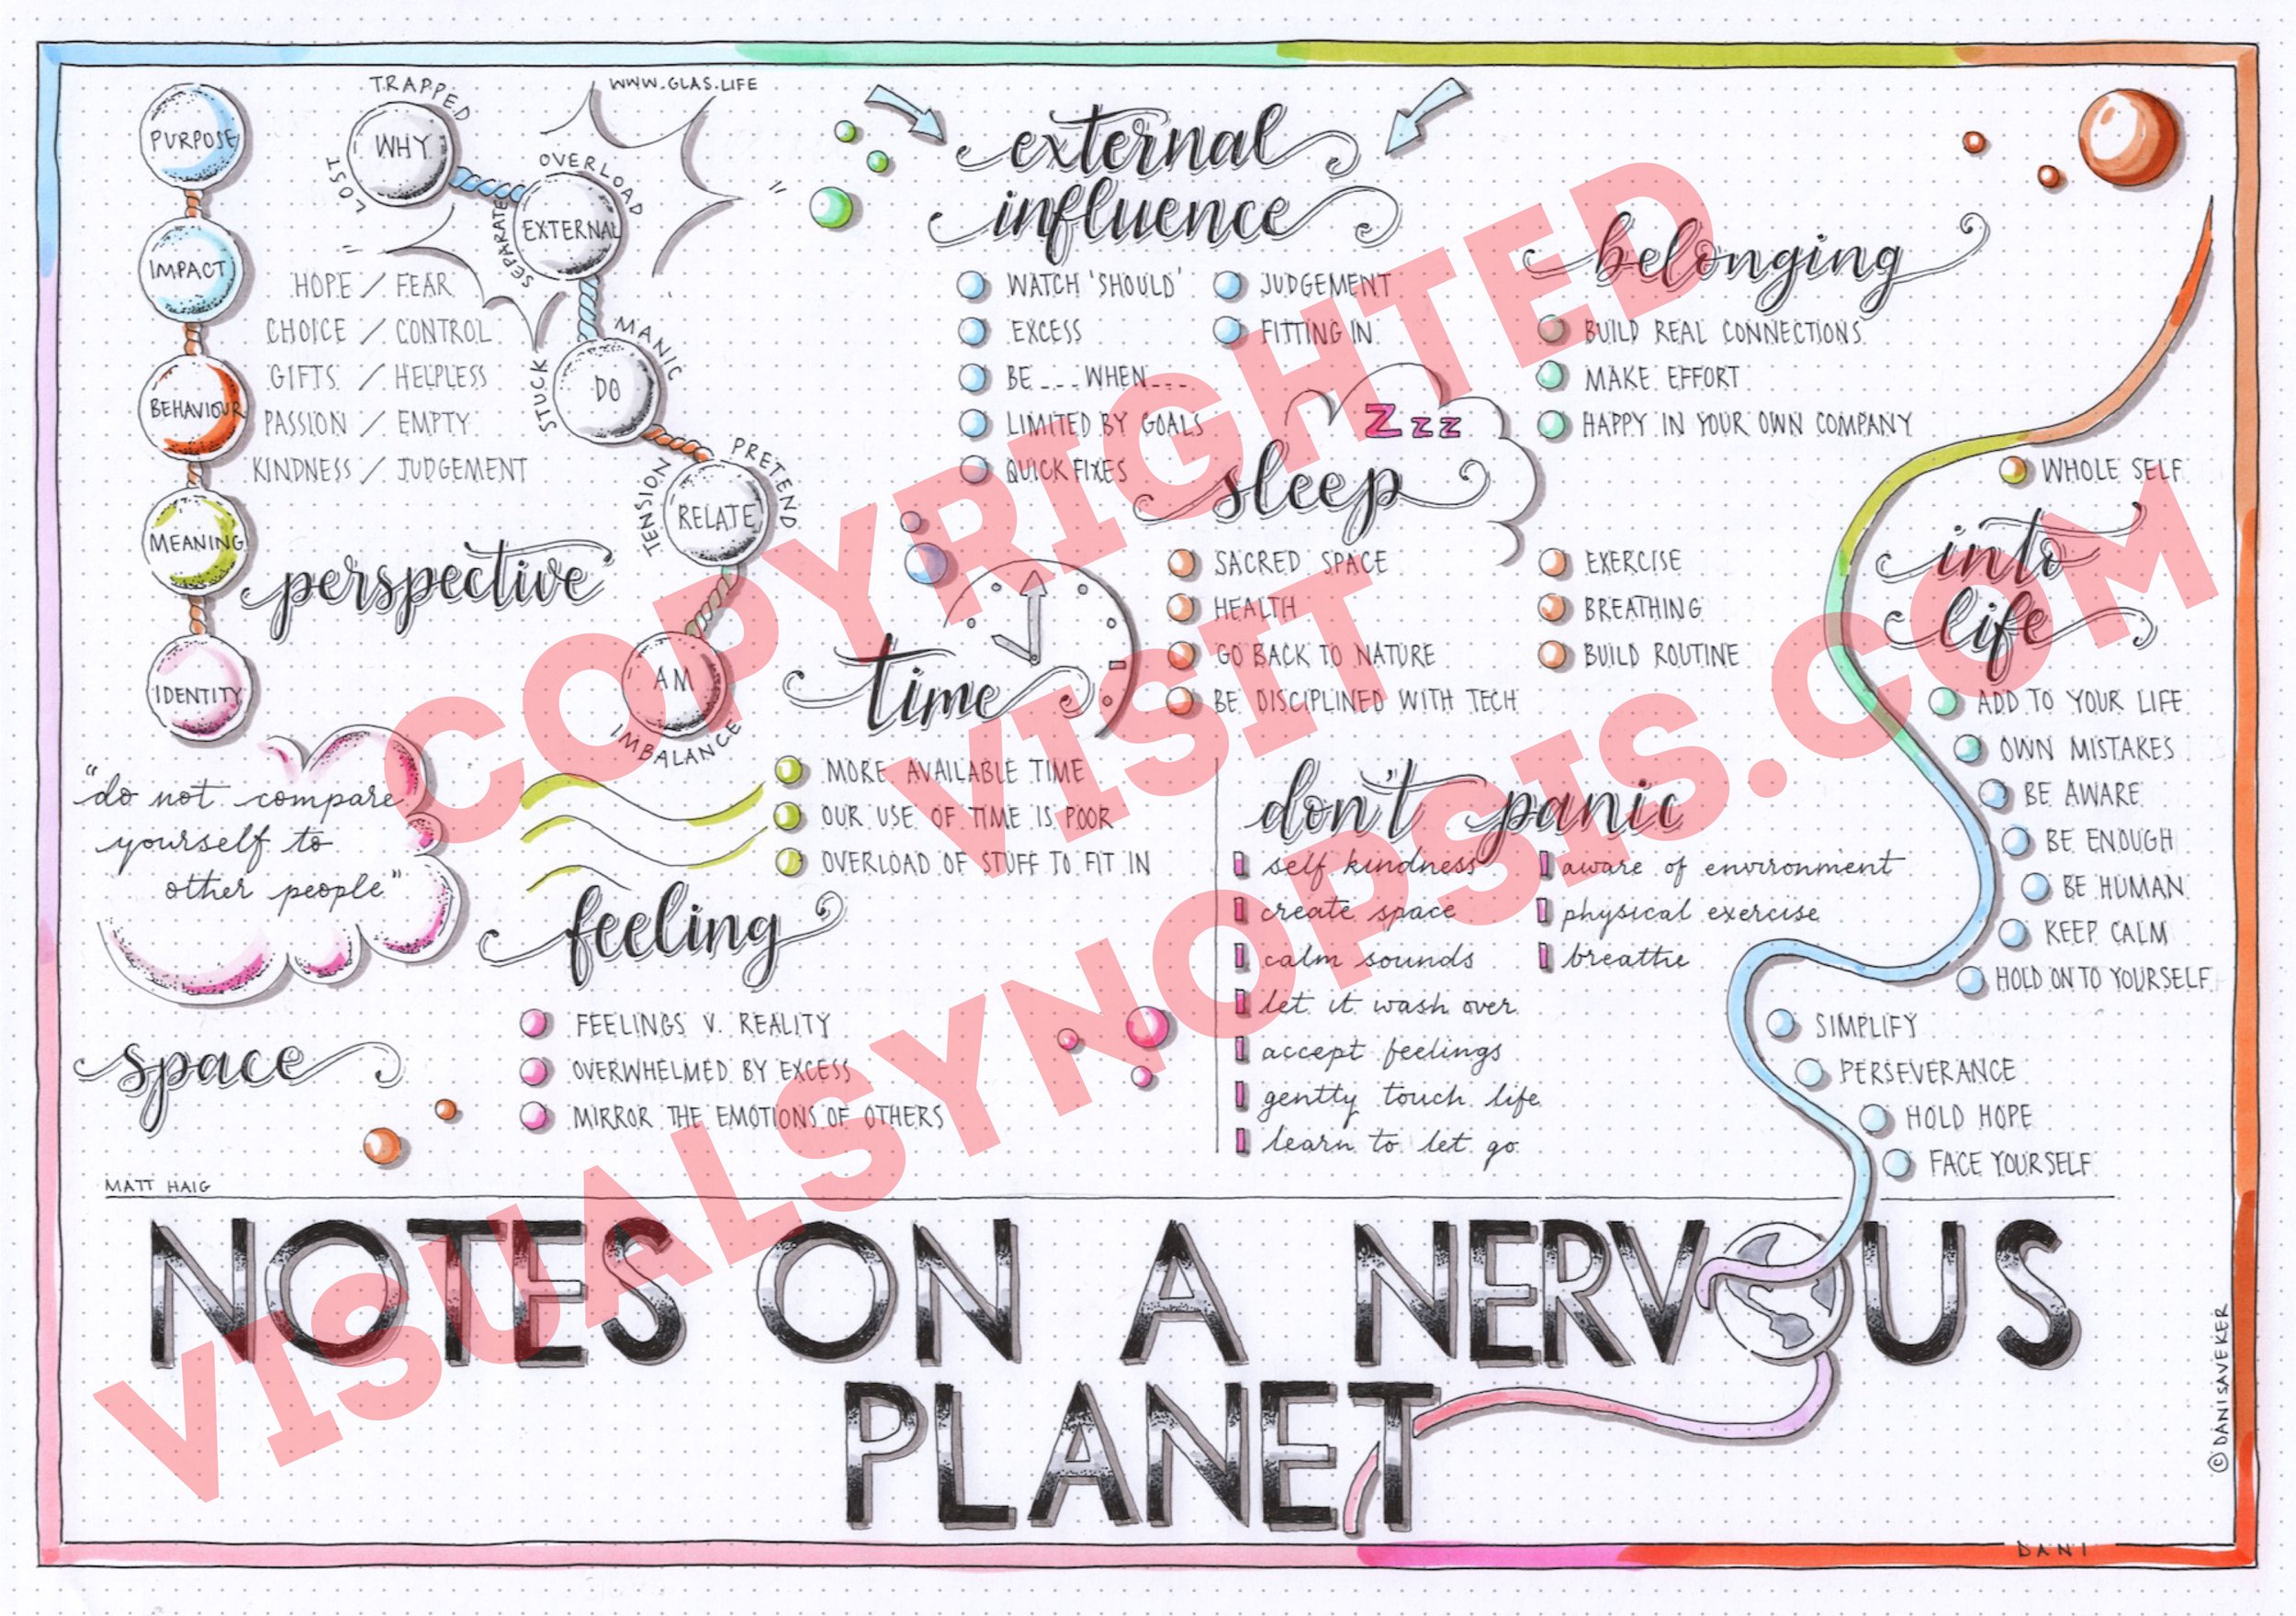 PURPOSE
IMPACT
BEHAVIOUR
MEANING
IDENTITY
TRAPPED
LOST
WHY
WWW.GLAS.LIFE
OVERLOAD
SEPARATE
EXTERNAL
MANIC
STUCK
DO
PRETEND
TENSION
RELATE
AM
IMBALANCE
HOPE / FEAR
CHOICE / CONTROL
GIFTS / HELPLESS
PASSION / EMPTY
KINDNESS / JUDGEMENT
perspective
"do not compare
yourself to
other people"
space
external
influence
WATCH 'SHOULD'
EXCESS
BE ... WHEN ...
LIMITED BY GOALS
QUICK FIXES
JUDGEMENT
FITTING IN
belonging
BUILD REAL CONNECTIONS
MAKE EFFORT
HAPPY IN YOUR OWN COMPANY
Zzz
sleep
SACRED SPACE
HEALTH
GO BACK TO NATURE
BE DISCIPLINED WITH TECH
EXERCISE
BREATHING
BUILD ROUTINE
time
MORE AVAILABLE TIME
OUR USE OF TIME IS POOR
OVERLOAD OF STUFF TO FIT IN
feeling
FEELINGS V. REALITY
OVERWHELMED BY EXCESS
MIRROR THE EMOTIONS OF OTHERS
don't panic
self kindness
create space
calm sounds
let it wash over
accept feelings
gently touch life
learn to let go
aware of environment
physical exercise
breathe
WHOLE SELF
into
life
ADD TO YOUR LIFE
OWN MISTAKES
BE AWARE
BE ENOUGH
BE HUMAN
KEEP CALM
HOLD ON TO YOURSELF
SIMPLIFY
PERSEVERANCE
HOLD HOPE
FACE YOURSELF
MATT HAIG
NOTES ON A NERVOUS
PLANET
© DANI SAVEKER
DANI
COPYRIGHTED
VISIT
VISUALSYNOPSIS.COM